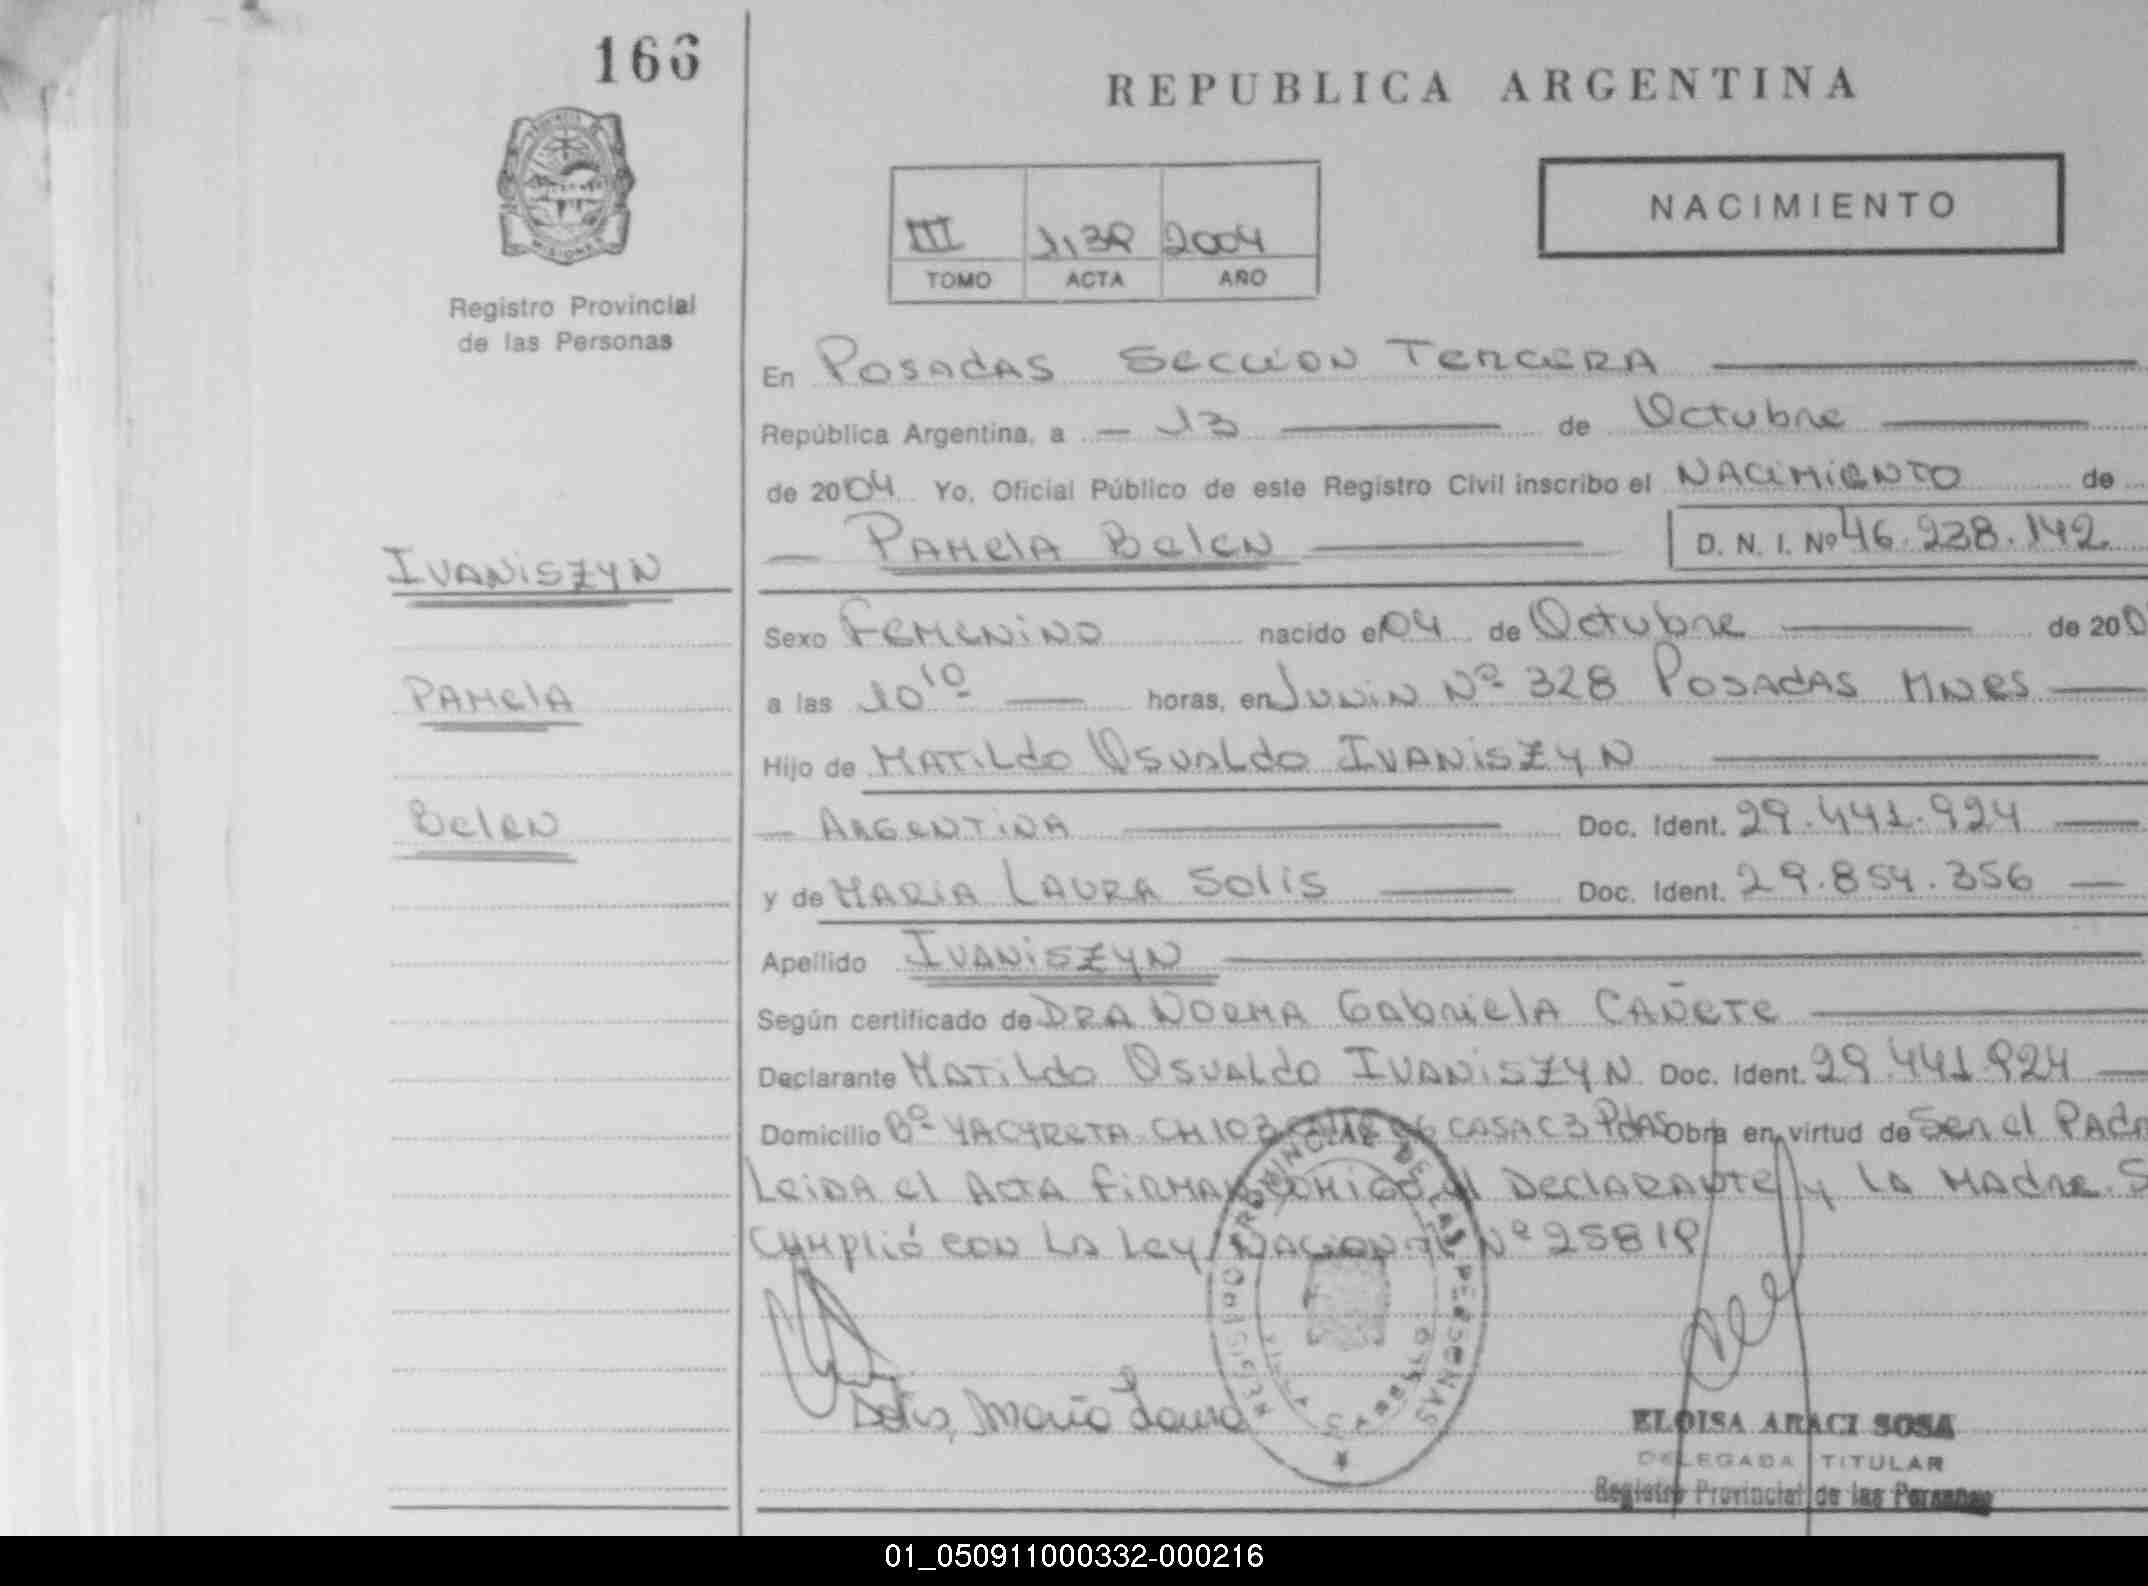 166
REPUBLICA ARGENTINA
NACIMIENTO
III 1139 2004
TOMO ACTA AÑO
PROVINCIA DE MISIONES
Registro Provincial
de las Personas
En Posadas Seccion Tercera
República Argentina, a 13 de Octubre
de 2004 Yo, Oficial Público de este Registro Civil inscribo el Nacimiento de
Pamela Belen D. N. I. Nº 46.238.142
Ivaniszyn
Sexo Femenino nacido el 04 de Octubre de 200
Pamela
a las 10 10 horas, en Junin Nº 328 Posadas Mnes
Hijo de Matildo Osvaldo Ivaniszyn
Belen
Argentina Doc. Ident. 29.441.924
y de Maria Laura Solis Doc. Ident. 29.854.356
Apellido Ivaniszyn
Según certificado de Dra Norma Gabriela Cañete
Declarante Matildo Osvaldo Ivaniszyn Doc. Ident. 29.441.924
Domicilio Bº Yacyreta CH 103 Casa C3 Pdas Obra en virtud de Ser el Padr
Leida el Acta Firman Comigo el Declarante y La Madre. S
Cumplió con La Ley Nacional Nº 25819
REGISTRO PROVINCIAL DE LAS PERSONAS
Solis, Maria Laura
ELOISA ARACI SOSA
DELEGADA TITULAR
Registro Provincial de las Personas
01_050911000332-000216